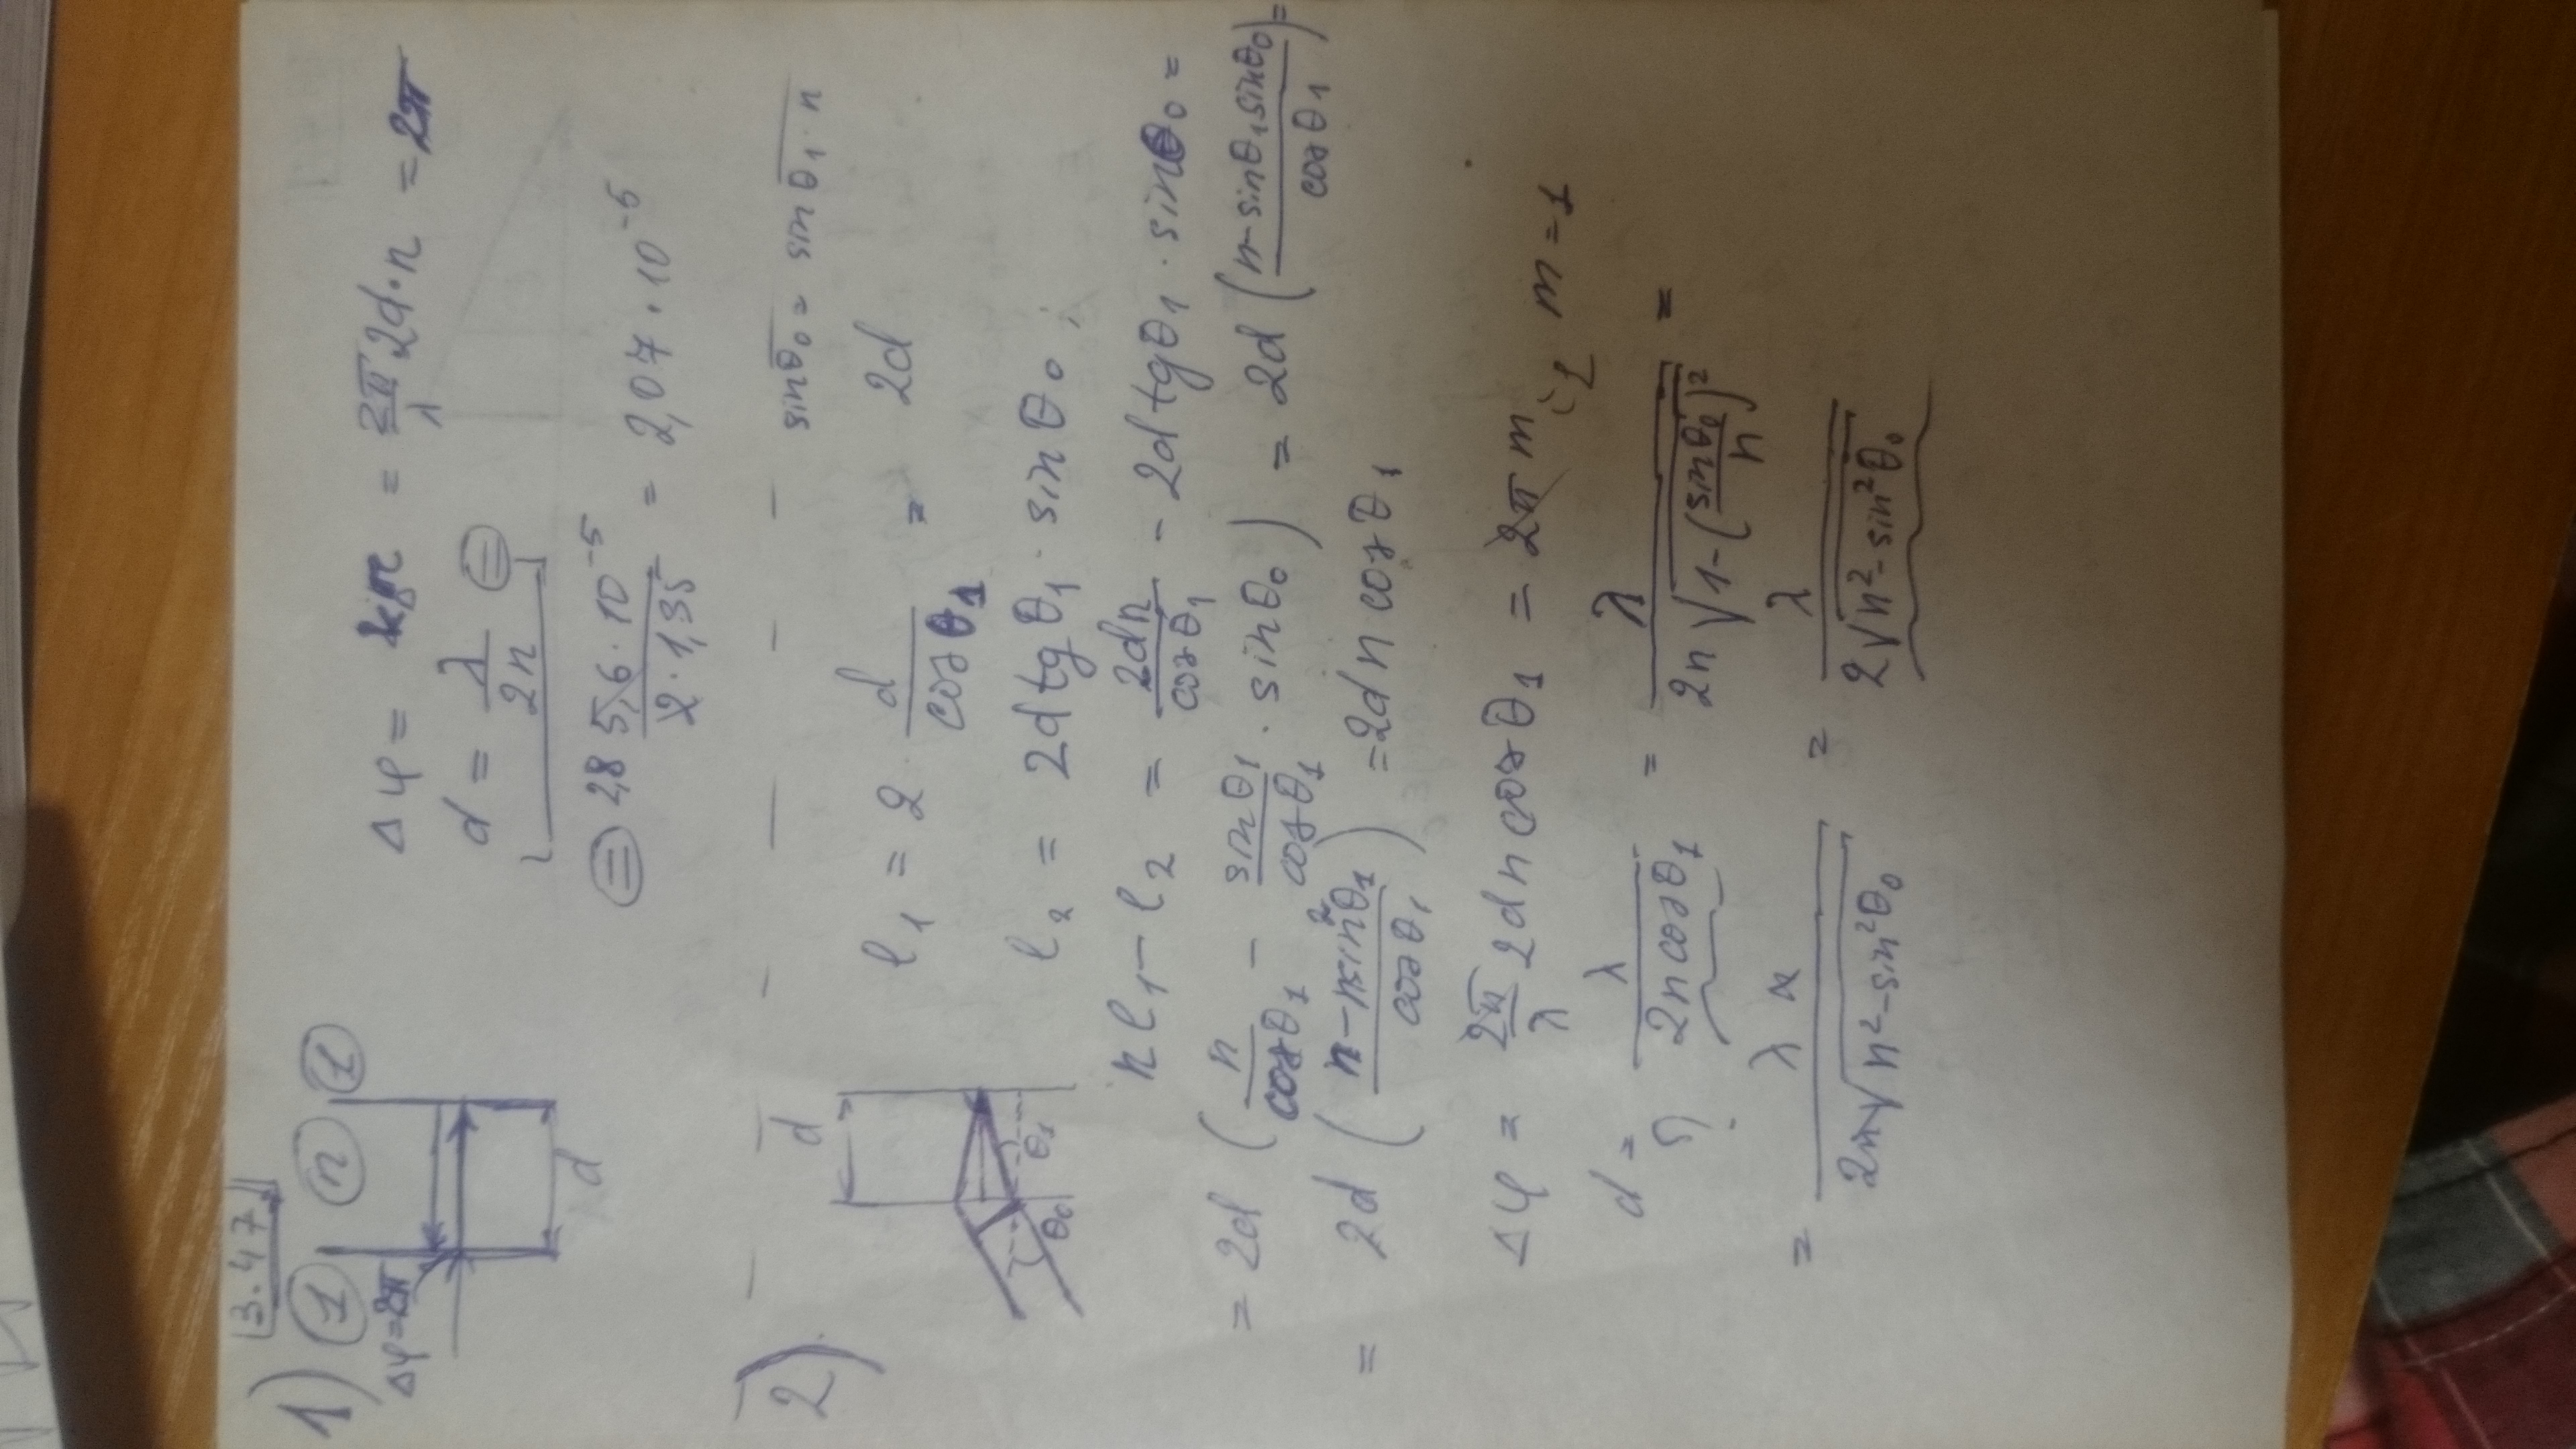 3.47
1) 1 n 1
Δφ=2π
Δφ = = 2π/λ 2d·n = 2π
d = λ/2n =
d
= 2,8 5,6·10⁻⁵/2·1,35 = 2,07·10⁻⁵
2) d
sinθ₀ = sinθ₁·n
l₁ = 2·d/cosθ₁ = 2d
θ₀ θ₁
l₂ = 2d tgθ₁·sinθ₀;
nl₁ − l₂ = 2dn/cosθ₁ − 2d tgθ₁·sinθ₀ =
= 2d (n/cosθ₁ − sinθ₁/cosθ₁·sinθ₀) = 2d (n−sinθ₁sinθ₀/cosθ₁) =
= 2d (n−nsin²θ₁/cosθ₁) = 2dn cosθ₁
Δφ = 2π/λ 2dn cosθ₁ = 2π m, m = 1
d = λ/2n cosθ₁ = λ/2n√1−(sinθ₀/n)² =
?
= λ n/2n√n²−sin²θ₀ = λ/2√n²−sin²θ₀